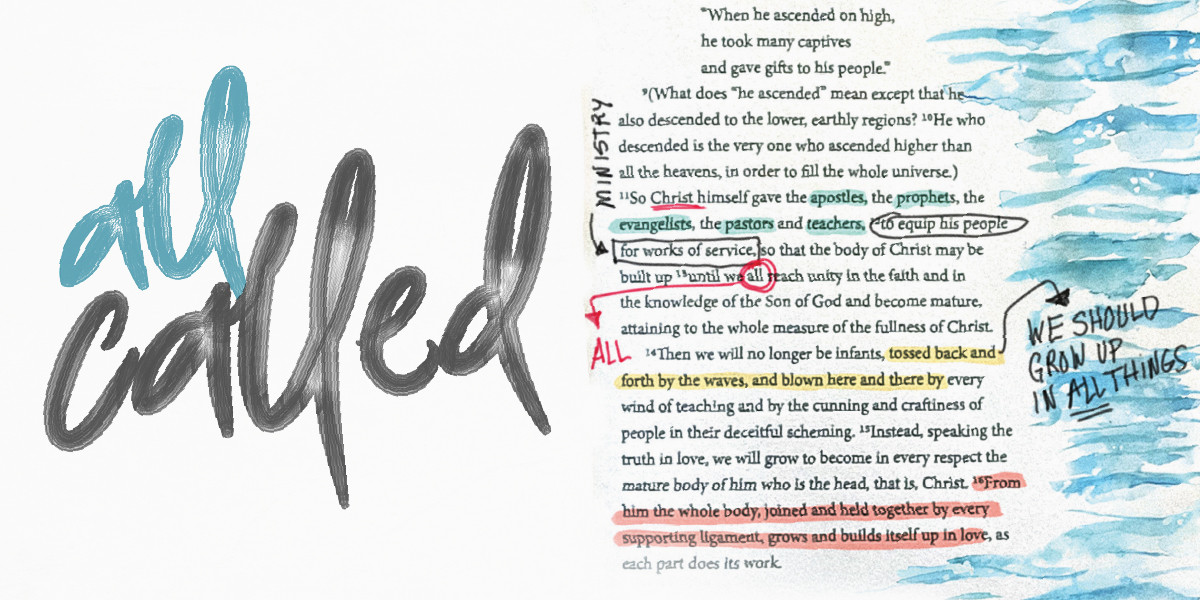 all
called
"When he ascended on high,
he took many captives
and gave gifts to his people."
⁹(What does "he ascended" mean except that he
also descended to the lower, earthly regions? ¹⁰He who
descended is the very one who ascended higher than
all the heavens, in order to fill the whole universe.)
¹¹So Christ himself gave the apostles, the prophets, the
evangelists, the pastors and teachers, ¹²to equip his people
for works of service, so that the body of Christ may be
built up ¹³until we all reach unity in the faith and in
the knowledge of the Son of God and become mature,
attaining to the whole measure of the fullness of Christ.
¹⁴Then we will no longer be infants, tossed back and
forth by the waves, and blown here and there by every
wind of teaching and by the cunning and craftiness of
people in their deceitful scheming. ¹⁵Instead, speaking the
truth in love, we will grow to become in every respect the
mature body of him who is the head, that is, Christ. ¹⁶From
him the whole body, joined and held together by every
supporting ligament, grows and builds itself up in love, as
each part does its work.
MINISTRY
ALL
WE SHOULD
GROW UP
IN ALL THINGS